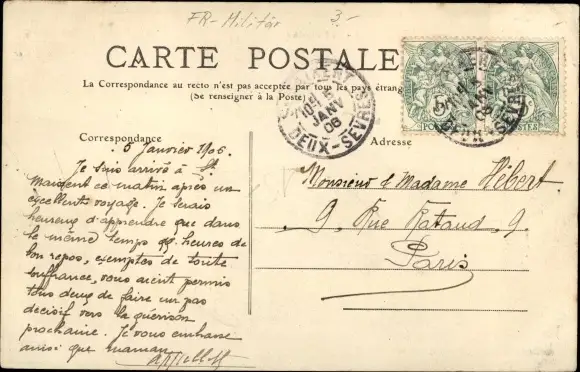 FR-Militär 3.-
CARTE POSTALE
La Correspondance au recto n'est pas acceptée par tous les pays étrang
(Se renseigner à la Poste)
JANV
06
DEUX-SÈVRES
Correspondance
Adresse
6 Janvier 1906.
Je suis arrivé à St
Maixent ce matin après un
excellent voyage. Je serais
heureux d'apprendre que dans
le même temps heures de
bon repos, exemptes de toute
souffrance, vous aient permis
tous deux de faire un pas
décisif vers la guérison
prochaine. Je vous embrasse
ainsi que maman
Monsieur & Madame Hébert
9, Rue Rataud, 9.
Paris